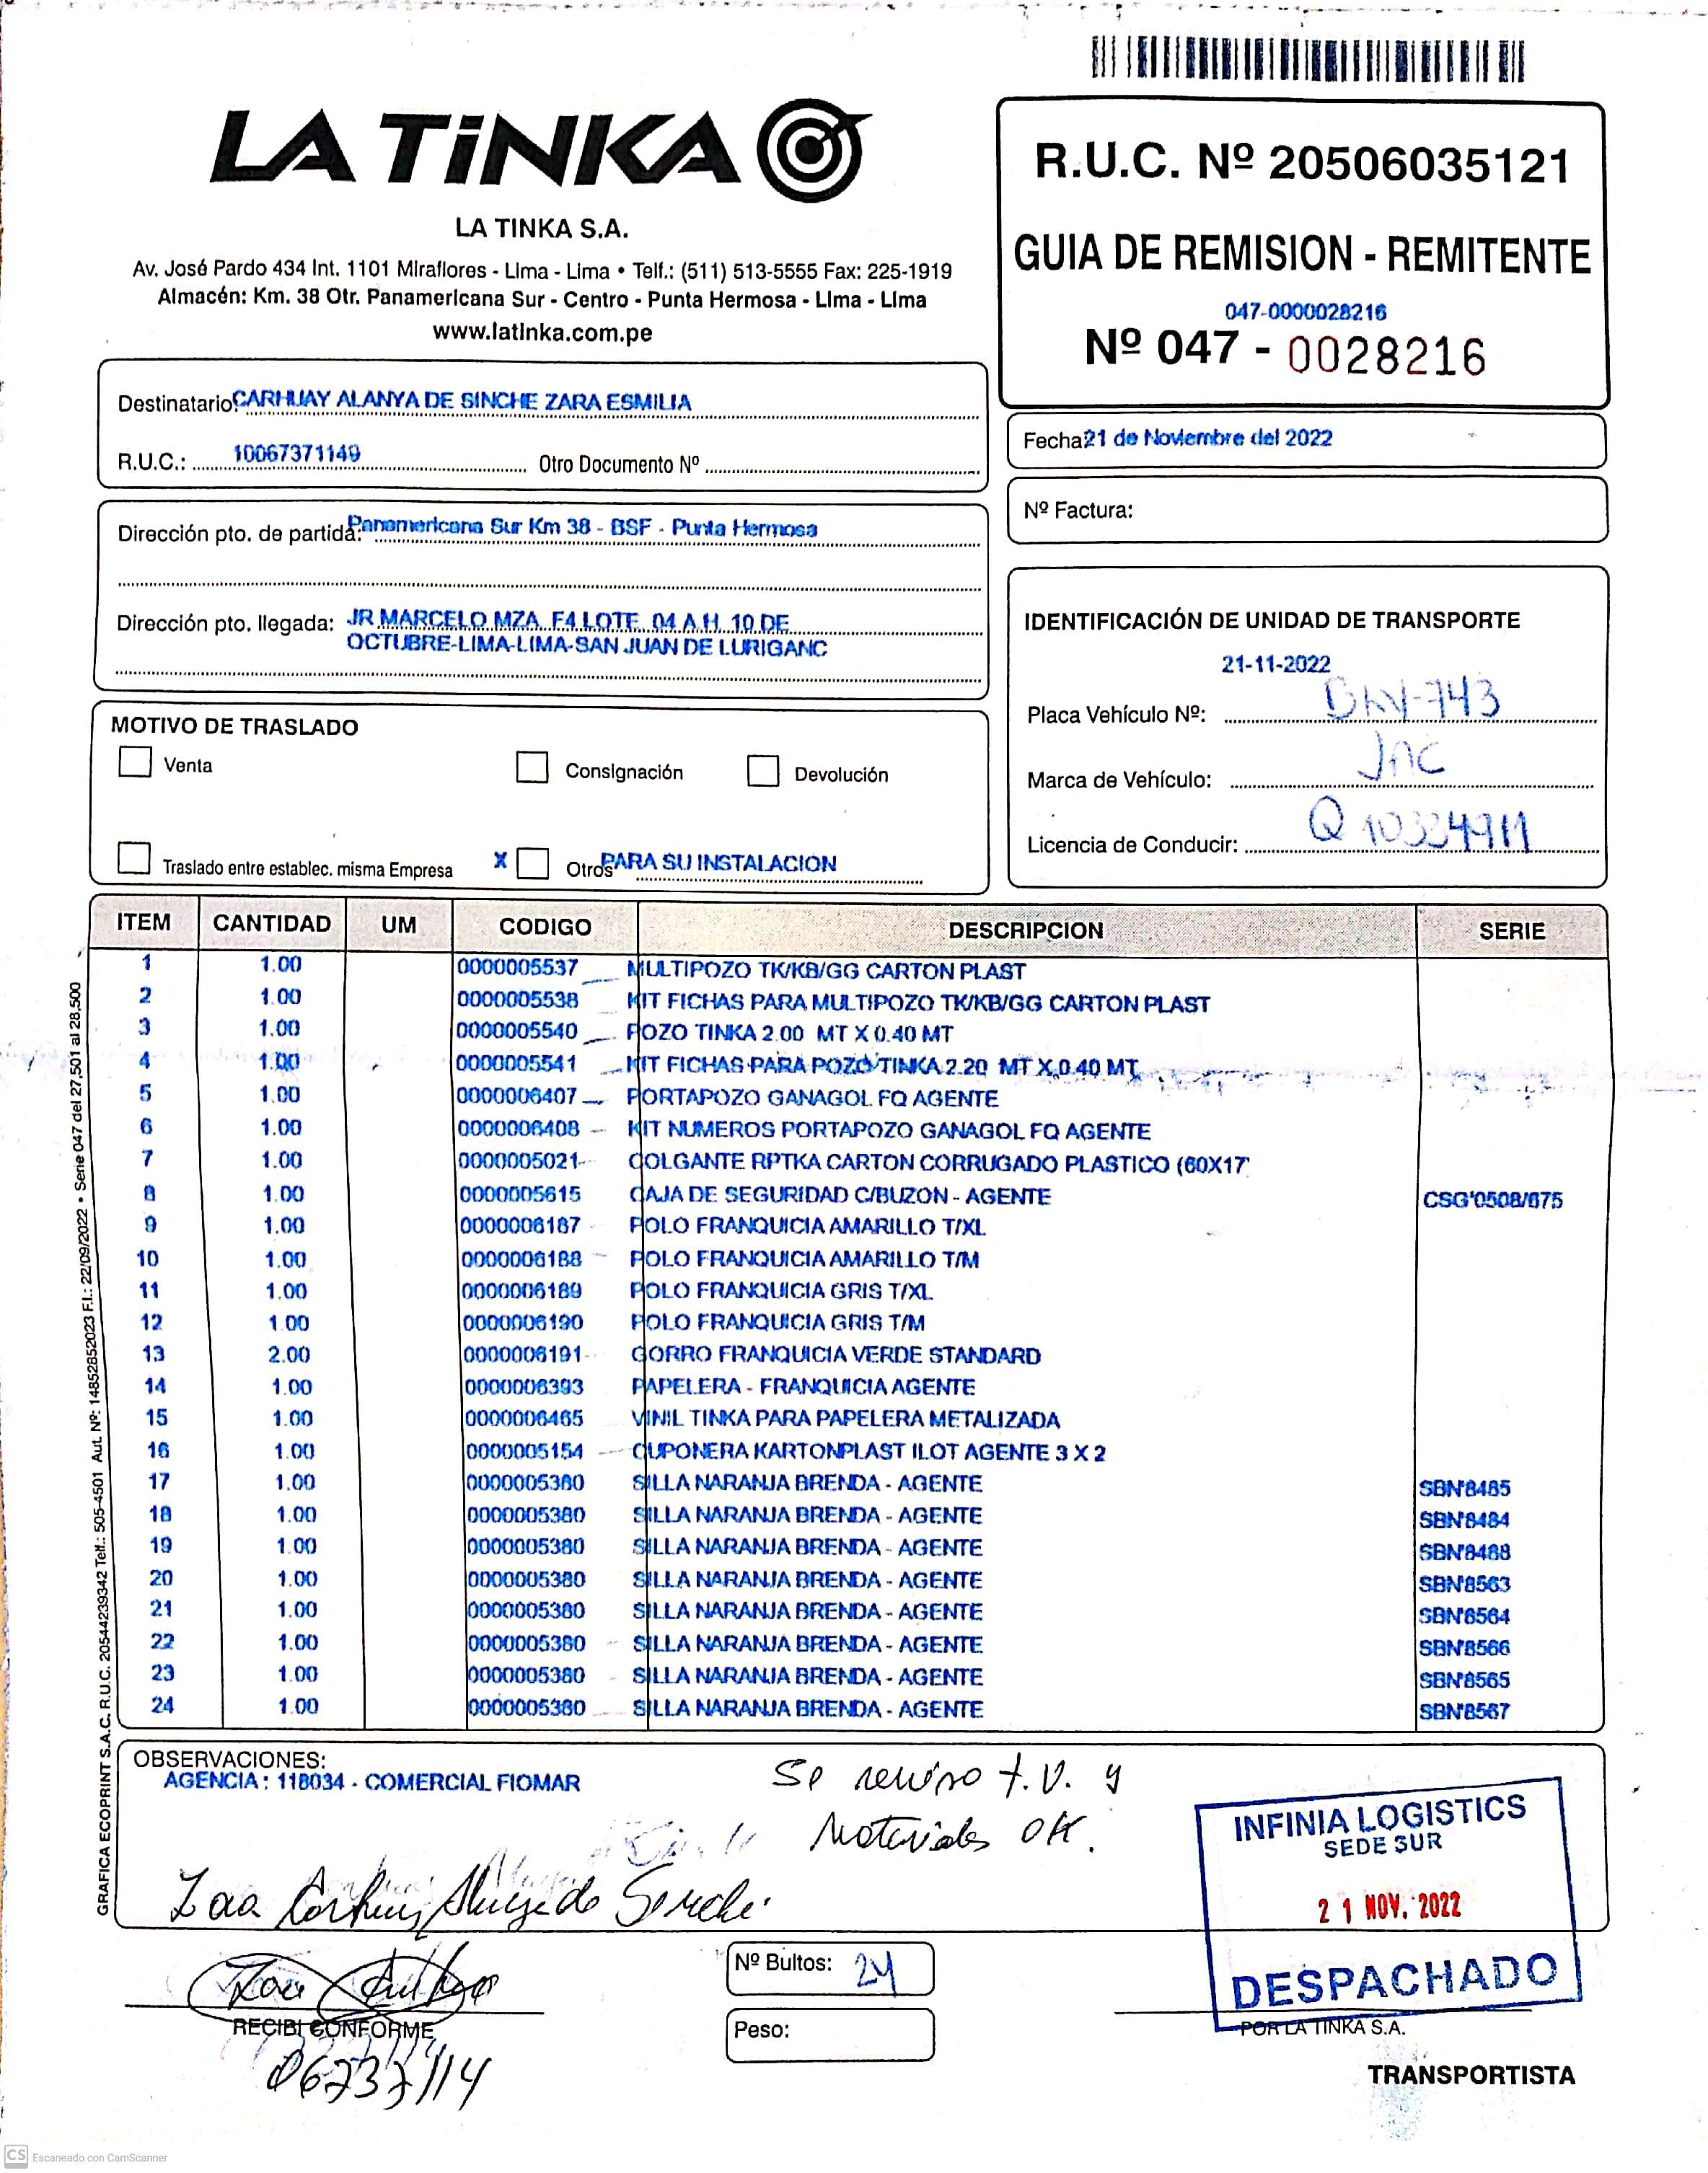 LA TiNKA
LA TINKA S.A.
Av. José Pardo 434 Int. 1101 Miraflores - Lima - Lima • Telf.: (511) 513-5555 Fax: 225-1919
Almacén: Km. 38 Otr. Panamericana Sur - Centro - Punta Hermosa - Lima - Lima
www.latinka.com.pe
R.U.C. Nº 20506035121
GUIA DE REMISION - REMITENTE
047-0000028216
Nº 047 - 0028216
Destinatario: CARHUAY ALANYA DE SINCHE ZARA ESMILIA
R.U.C.: 10067371149 Otro Documento Nº
Fecha 21 de Noviembre del 2022
Nº Factura:
Dirección pto. de partida: Panamericana Sur Km 38 - BSF - Punta Hermosa
Dirección pto. llegada: JR MARCELO MZA. F4 LOTE. 04 A.H. 10 DE
OCTUBRE-LIMA-LIMA-SAN JUAN DE LURIGANC
IDENTIFICACIÓN DE UNIDAD DE TRANSPORTE
21-11-2022
Placa Vehículo Nº:
Marca de Vehículo: JAC
Licencia de Conducir:
MOTIVO DE TRASLADO
Venta Consignación Devolución
Traslado entre establec. misma Empresa X Otros PARA SU INSTALACION
ITEM CANTIDAD UM CODIGO DESCRIPCION SERIE
1 1.00 0000005537 MULTIPOZO TK/KB/GG CARTON PLAST
2 1.00 0000005538 KIT FICHAS PARA MULTIPOZO TK/KB/GG CARTON PLAST
3 1.00 0000005540 POZO TINKA 2.00 MT X 0.40 MT
4 1.00 0000005541 KIT FICHAS PARA POZO TINKA 2.20 MT X 0.40 MT
5 1.00 0000006407 PORTAPOZO GANAGOL FQ AGENTE
6 1.00 0000006408 KIT NUMEROS PORTAPOZO GANAGOL FQ AGENTE
7 1.00 0000005021 COLGANTE RPTKA CARTON CORRUGADO PLASTICO (60X17
8 1.00 0000005615 CAJA DE SEGURIDAD C/BUZON - AGENTE CSG'0508/675
9 1.00 0000006187 POLO FRANQUICIA AMARILLO T/XL
10 1.00 0000006188 POLO FRANQUICIA AMARILLO T/M
11 1.00 0000006189 POLO FRANQUICIA GRIS T/XL
12 1.00 0000006190 POLO FRANQUICIA GRIS T/M
13 2.00 0000006191 GORRO FRANQUICIA VERDE STANDARD
14 1.00 0000006393 PAPELERA - FRANQUICIA AGENTE
15 1.00 0000006465 VINIL TINKA PARA PAPELERA METALIZADA
16 1.00 0000005154 CUPONERA KARTONPLAST ILOT AGENTE 3 X 2
17 1.00 0000005380 SILLA NARANJA BRENDA - AGENTE SBN'8485
18 1.00 0000005380 SILLA NARANJA BRENDA - AGENTE SBN'8484
19 1.00 0000005380 SILLA NARANJA BRENDA - AGENTE SBN'8488
20 1.00 0000005380 SILLA NARANJA BRENDA - AGENTE SBN'8563
21 1.00 0000005380 SILLA NARANJA BRENDA - AGENTE SBN'8564
22 1.00 0000005380 SILLA NARANJA BRENDA - AGENTE SBN'8566
23 1.00 0000005380 SILLA NARANJA BRENDA - AGENTE SBN'8565
24 1.00 0000005380 SILLA NARANJA BRENDA - AGENTE SBN'8567
GRAFICA ECOPRINT S.A.C. R.U.C. 20544239342 Telf.: 505-4501 Aut. Nº: 14852852023 F.I.: 22/09/2022 • Serie 047 del 27,501 al 28,500
OBSERVACIONES:
AGENCIA : 118034 - COMERCIAL FIOMAR
Se reviso t.v. y
Materiales OK.
INFINIA LOGISTICS
SEDE SUR
21 NOV. 2022
DESPACHADO
RECIBI CONFORME
Nº Bultos: 24
Peso:
POR LA TINKA S.A.
TRANSPORTISTA
CS Escaneado con CamScanner